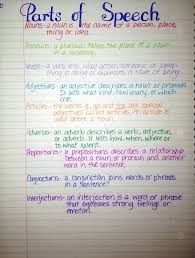 Parts of Speech
Nouns - a noun is the name of a person, place,
thing or idea.
Pronouns - a pronoun takes the place of a noun
in a sentence.
Verbs - a verb tells what action someone or some-
thing is doing or expresses a state of being.
Adjectives - an adjective describes a noun or pronoun.
It tells what kind, how many, or which
one.
Articles - the words a, an, and the are special
adjectives called articles. An article is
used before a noun.
Adverbs - an adverb describes a verb, adjective,
or adverb. It tells how, when, where, or
to what extent.
Prepositions - a prepositions describes a relationship
between a noun or pronoun and another
word in the sentence.
Conjunctions - a conjunction joins words or phrases
in a sentence.
Interjections - an interjection is a word or phrase
that expresses strong feelings or
emotion.